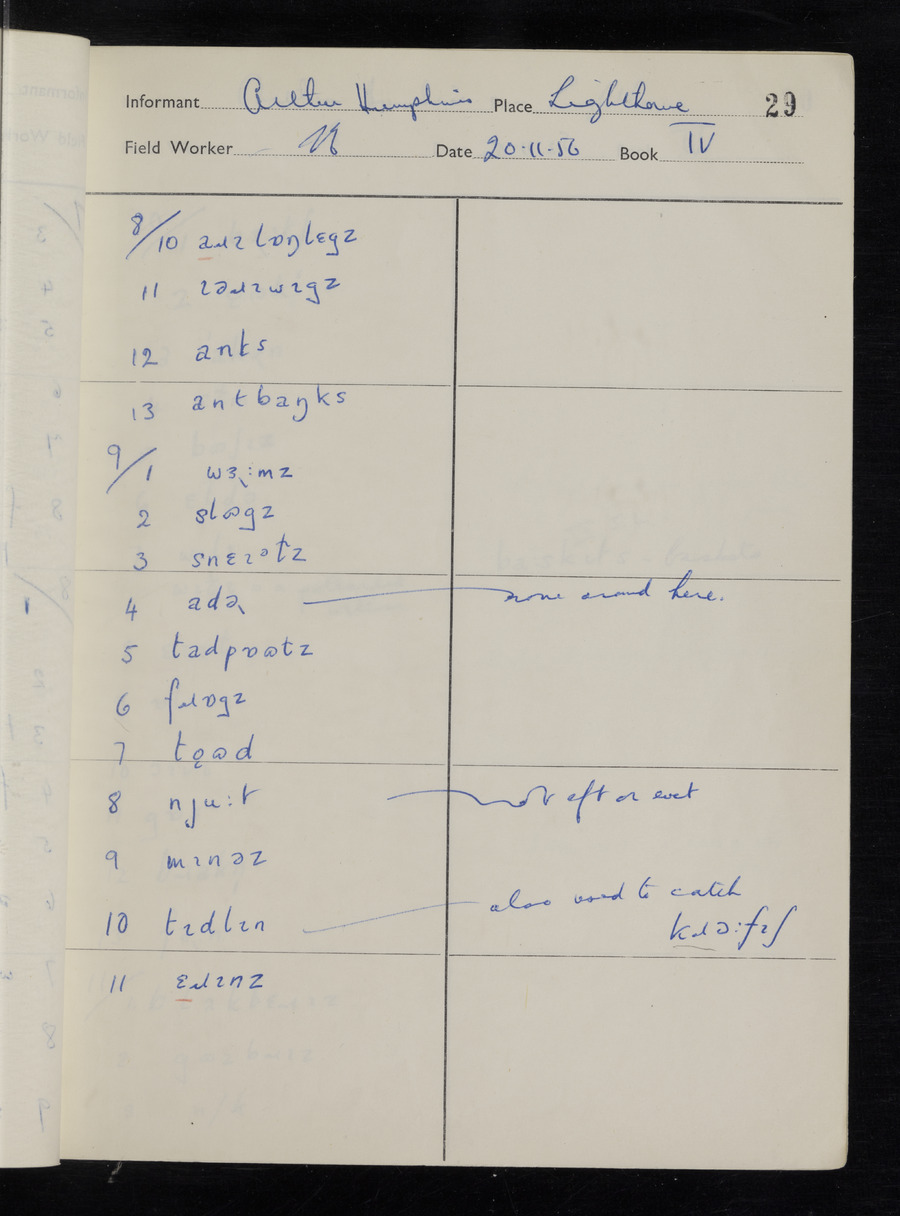 Informant Arthur Humphries Place Lighthorne 29
Field Worker Date 20·11·56 Book IV
8/10 aɹɪ lɒŋlɛgz
11 ɪəɹɪwɪgz
12 ants
13 antbaŋks
9/1 wɜ˞:mz
2 slɒgz
3 snɛɪᵊtz
4 adə˞ none around here.
5 tadpɒʊtz
6 fɹɒgz
7 tọʊd
8 nju:t not eft or evet
9 mɪnəz
10 tɪdlɪn also used to catch
kɹɔ:fɪʃ
11 ɛɹɪnz